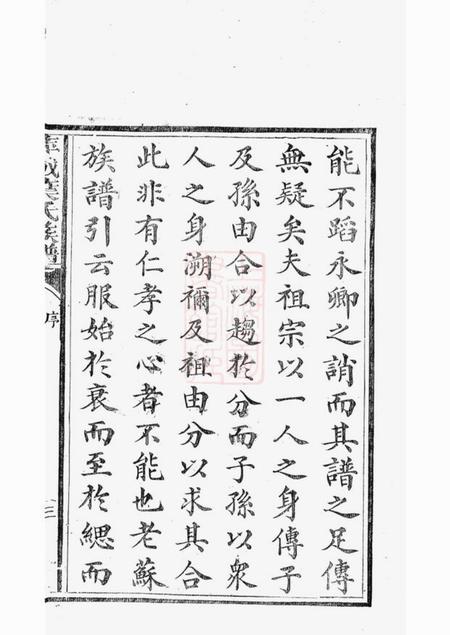 能不蹈永卿之誚而其譜之足傳
無疑矣夫祖宗以一人之身傳子
及孫由合以趨於分而子孫以衆
人之身溯禰及祖由分以求其合
此非有仁孝之心者不能也老蘇
族譜引云服始於衰而至於緦而
葉氏族譜
序
三